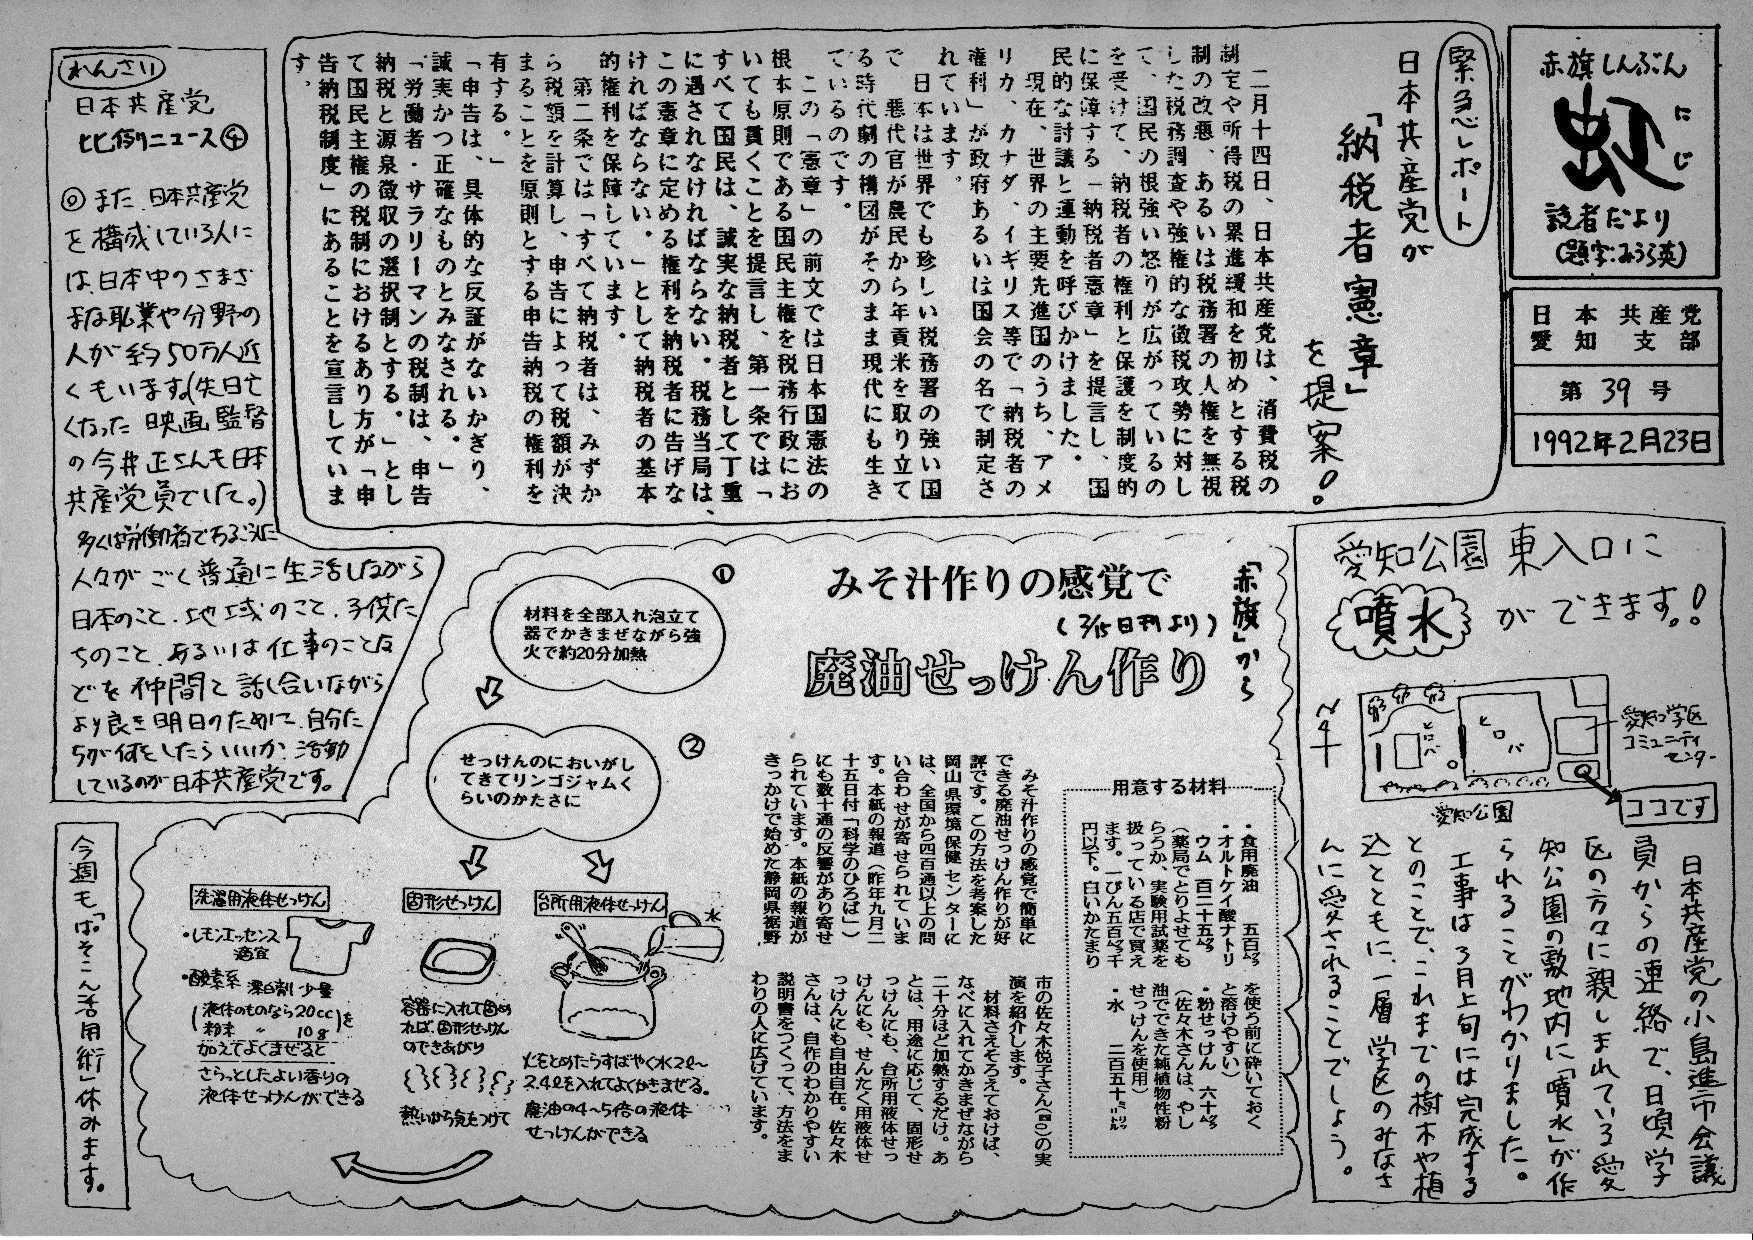 赤旗しんぶん
虹
にじ
読者だより
(題字:みうら英)
日本共産党
愛知支部
第39号
1992年2月23日
緊急レポート
日本共産党が
「納税者憲章」
を提案!
二月十四日、日本共産党は、消費税の
制定や所得税の累進緩和を初めとする税
制の改悪、あるいは税務署の人権を無視
した税務調査や強権的な徴税攻勢に対し
て、国民の根強い怒りが広がっているの
を受けて、納税者の権利と保護を制度的
に保障する「納税者憲章」を提言し、国
民的な討議と運動を呼びかけました。
現在、世界の主要先進国のうち、アメ
リカ、カナダ、イギリス等で「納税者の
権利」が政府あるいは国会の名で制定さ
れています。
日本は世界でも珍しい税務署の強い国
で 悪代官が農民から年貢米を取り立て
る時代劇の構図がそのまま現代にも生き
ているのです。
この「憲章」の前文では日本国憲法の
根本原則である国民主権を税務行政にお
いても貫くことを提言し、第一条では「
すべて国民は、誠実な納税者として丁重
に遇されなければならない。税務当局は、
この憲章に定める権利を納税者に告げな
ければならない。」として納税者の基本
的権利を保障しています。
第二条では「すべて納税者は、みずか
ら税額を計算し、申告によって税額が決
まることを原則とする申告納税の権利を
有する。」
「申告は、具体的な反証がないかぎり、
誠実かつ正確なものとみなされる。」
「労働者・サラリーマンの税制は、申告
納税と源泉徴収の選択制とする。」とし
て国民主権の税制におけるあり方が「申
告納税制度」にあることを宣言していま
す。
れんさい
日本共産党
比例ニュース④
◎また、日本共産党
を構成している人に
は、日本中のさまざ
まな職業や分野の
人が約50万人近
くもいます。(先日亡
くなった映画監督
の今井正さんも日本
共産党員でした。)
多くは労働者であるふつうに
人々がごく普通に生活しながら
日本のこと、地域のこと、子供た
ちのこと、あるいは仕事のことな
どを仲間と話し合いながら
より良き明日のために、自分た
ちが何をしたらいいか、活動
しているのが日本共産党です。
愛知公園東入口に
噴水ができます。!
ヒロバ
ヒロバ
愛知学区
コミュニティ
センター
愛知公園
ココです
日本共産党の小島進市会議
員からの連絡で、日頃学
区の方々に親しまれている愛
知公園の敷地内に「噴水」が作
られることがわかりました。
工事は3月上旬には完成する
とのことで、これまでの樹木や植
込とともに、一層学区のみなさ
んに愛やれることでしょう。
「赤旗」から
みそ汁作りの感覚で
(2/15日刊より)
廃油せっけん作り
みそ汁作りの感覚で簡単に
できる廃油せっけん作りが好
評です。この方法を考案した
岡山県環境保健センターに
は、全国から四百通以上の問
い合わせが寄せられていま
す。本紙の報道(昨年九月二
十五日付「科学のひろば」)
にも数十通の反響があり寄せ
られています。本紙の報道が
きっかけで始めた静岡県裾野
市の佐々木悦子さん(四〇)の実
演を紹介します。
材料さえそろえておけば、
なべに入れてかきまぜながら
二十分ほど加熱するだけ。あ
とは、用途に応じて、固形せ
っけんにも、台所用液体せっ
けんにも、せんたく用液体せ
っけんにも自由自在。佐々木
さんは、自作のわかりやすい
説明書をつくって、方法をま
わりの人に広げています。
用意する材料
・食用廃油 五百㌘
・オルトケイ酸ナトリ
ウム 百二十五㌘
(薬局でとりよせても
らうか、実験用試薬を
扱っている店で買え
ます。一びん五百㌘千
円以下。白いかたまり
を使う前に砕いておく
と溶けやすい)
・粉せっけん 六十㌘
(佐々木さんは、やし
油でできた純植物性粉
せっけんを使用)
・水 二百五十㍉㍑
①
材料を全部入れ泡立て
器でかきまぜながら強
火で約20分加熱
②
せっけんのにおいがし
てきてリンゴジャムく
らいのかたさに
台所用液体せっけん
水
火をとめたらすばやく水2ℓ〜
2.4ℓを入れてよくかきまぜる。
廃油の4〜5倍の液体
せっけんができる
固形せっけん
容器に入れて固め
れば、固形せっけん
のできあがり
熱いから気をつけて
洗濯用液体せっけん
・レモンエッセンス
適宜
・酸素系漂白剤少量
(液体のものなら20cc
粉末 〃 10g)を
加えてよくまぜると
さらっとしたよい香りの
液体せっけんができる
今週も「ぱそこん活用術」休みます。